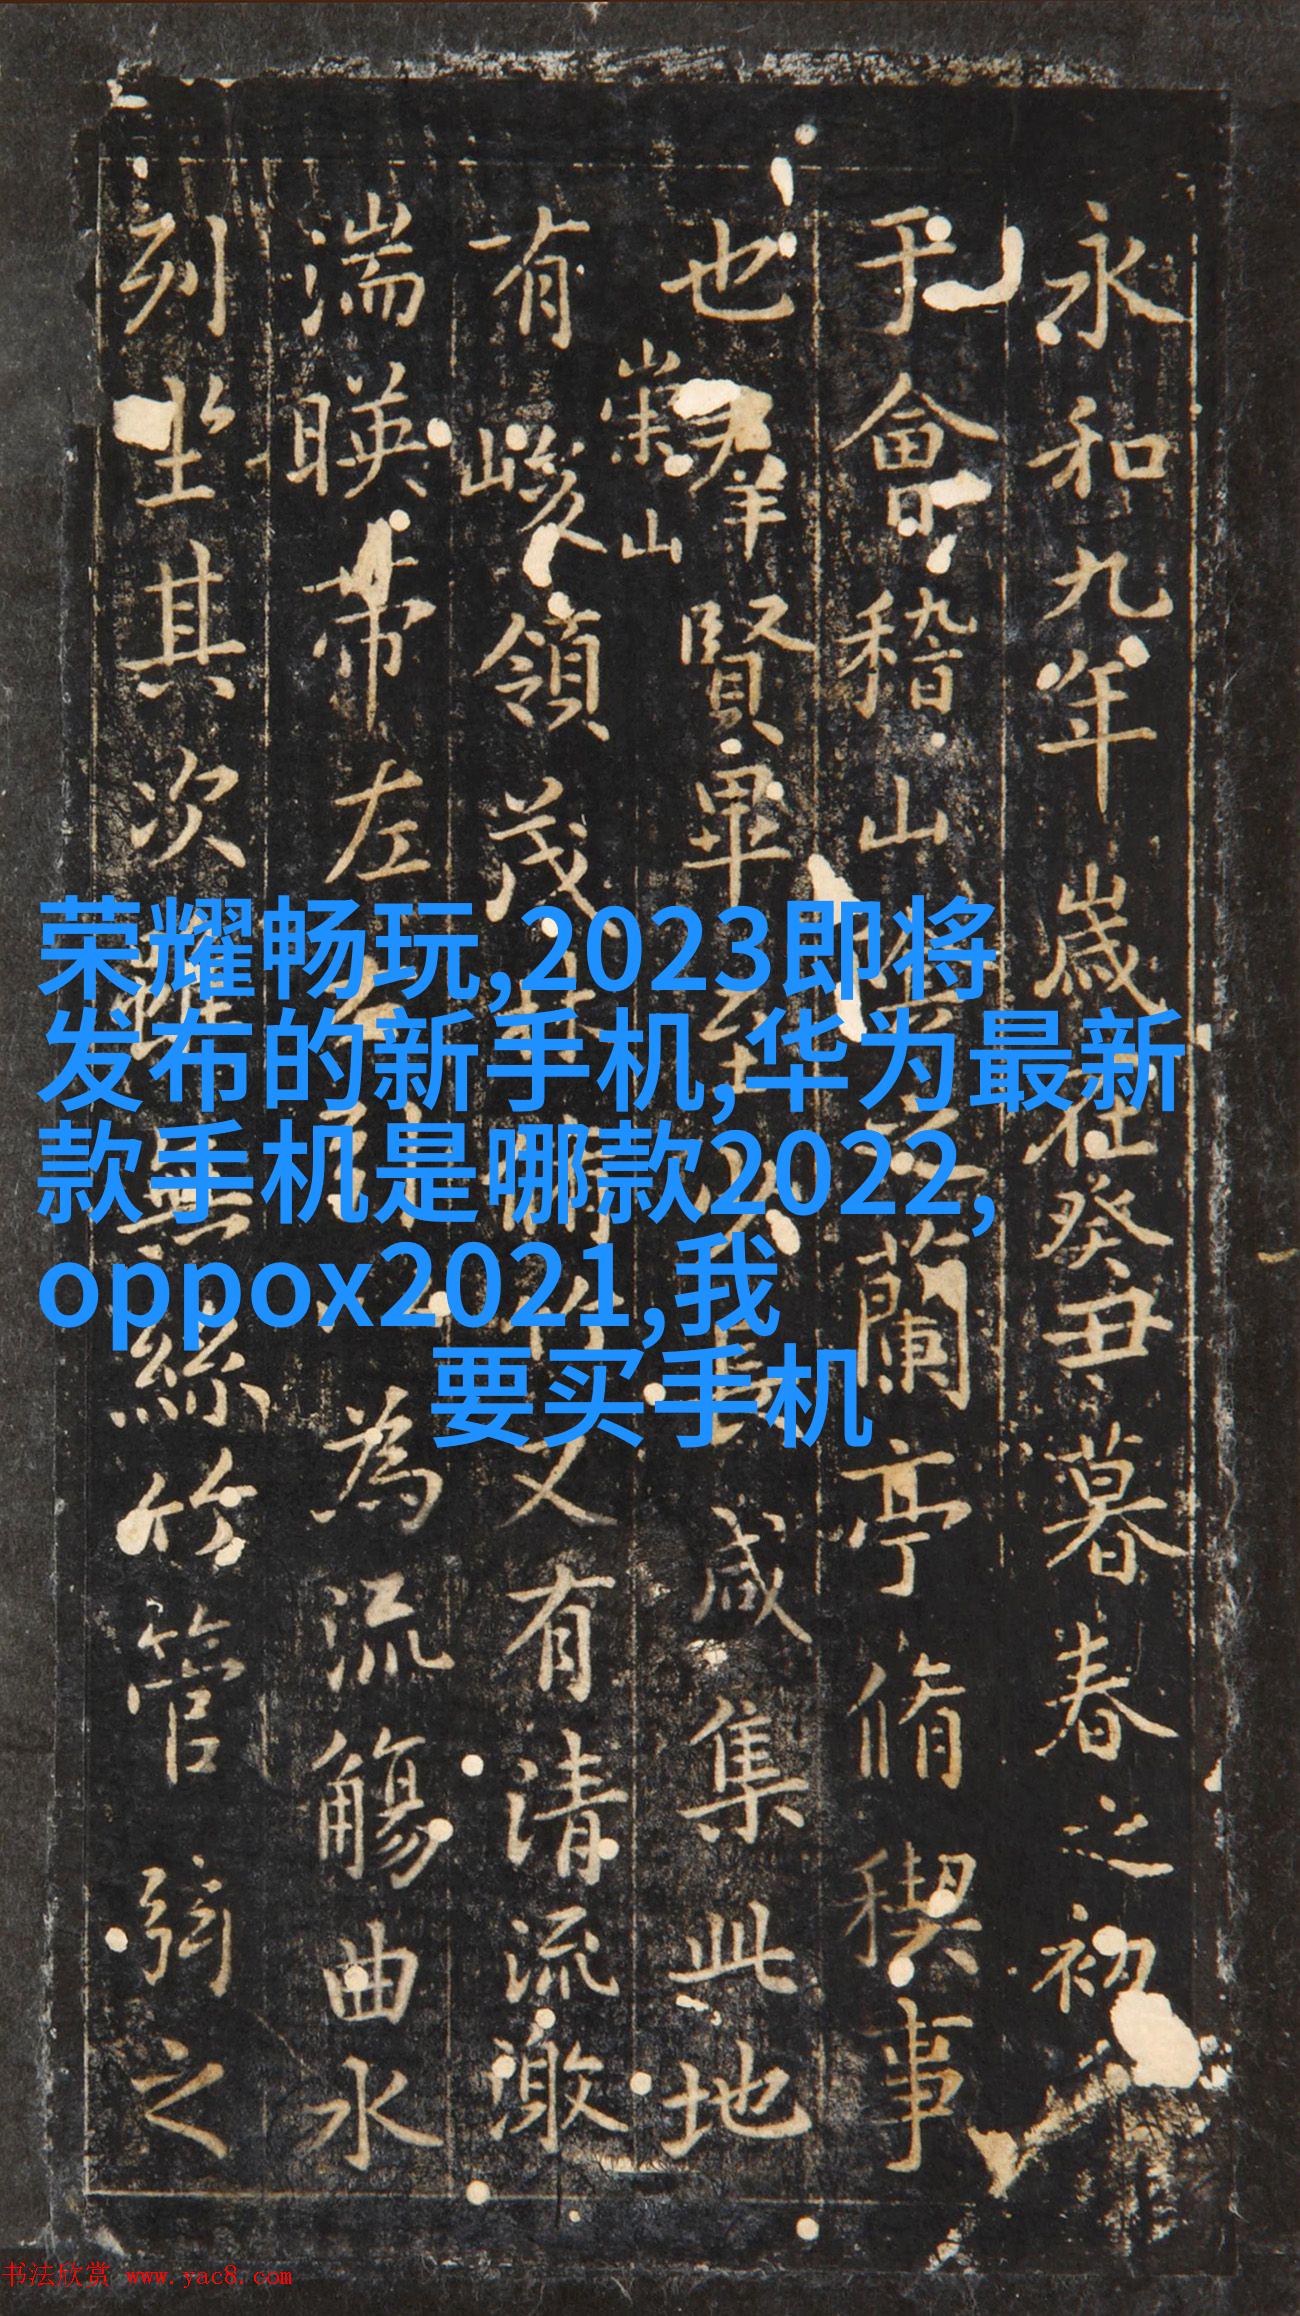 永和九年歲在癸丑暮春之初
于會稽山陰之蘭亭脩稧事
也群賢畢至少長咸集此地
崇山
有峻領茂林脩竹又有清流激
湍暎帶左右引以為流觴曲水
列坐其次雖無絲竹管弦之
荣耀畅玩,2023即将
发布的新手机,华为最新
款手机是哪款2022,
oppox2021,我
要买手机
书法欣赏 www.yac8.com